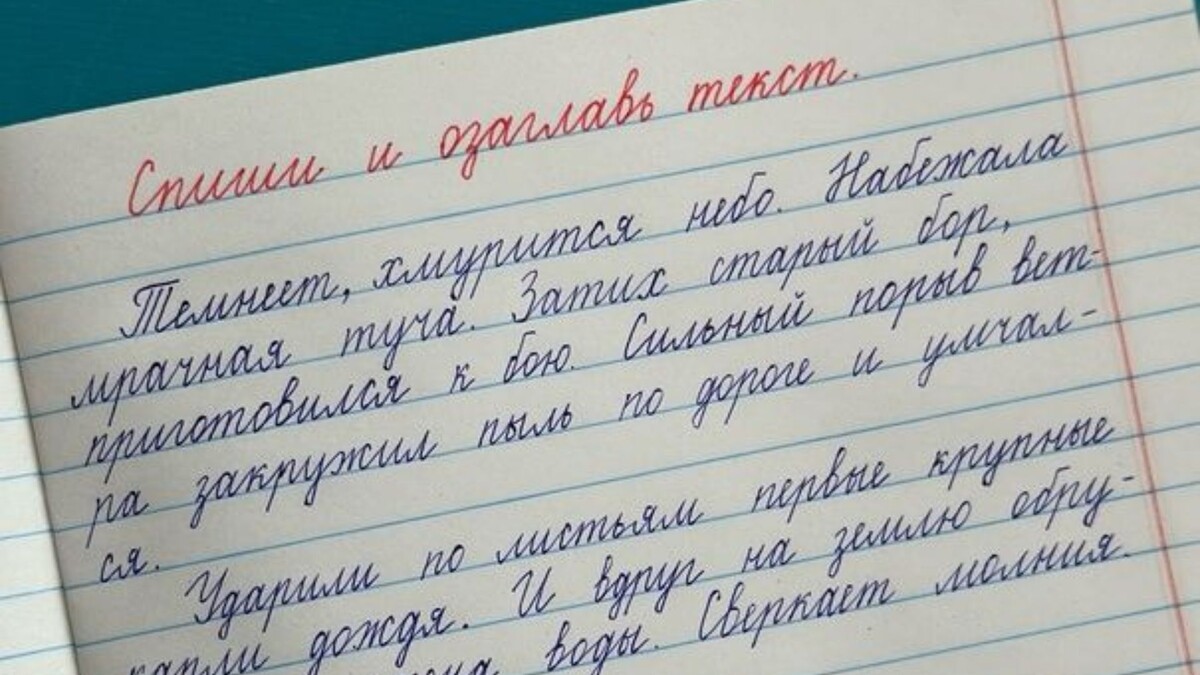 Спиши и озаглавь текст.
Темнеет, хмурится небо. Набежала
мрачная туча. Затих старый бор,
приготовился к бою. Сильный порыв вет-
ра закружил пыль по дороге и умчал-
ся.
Ударили по листьям первые крупные
капли дождя. И вдруг на землю обру-
воды. Сверкает молния.